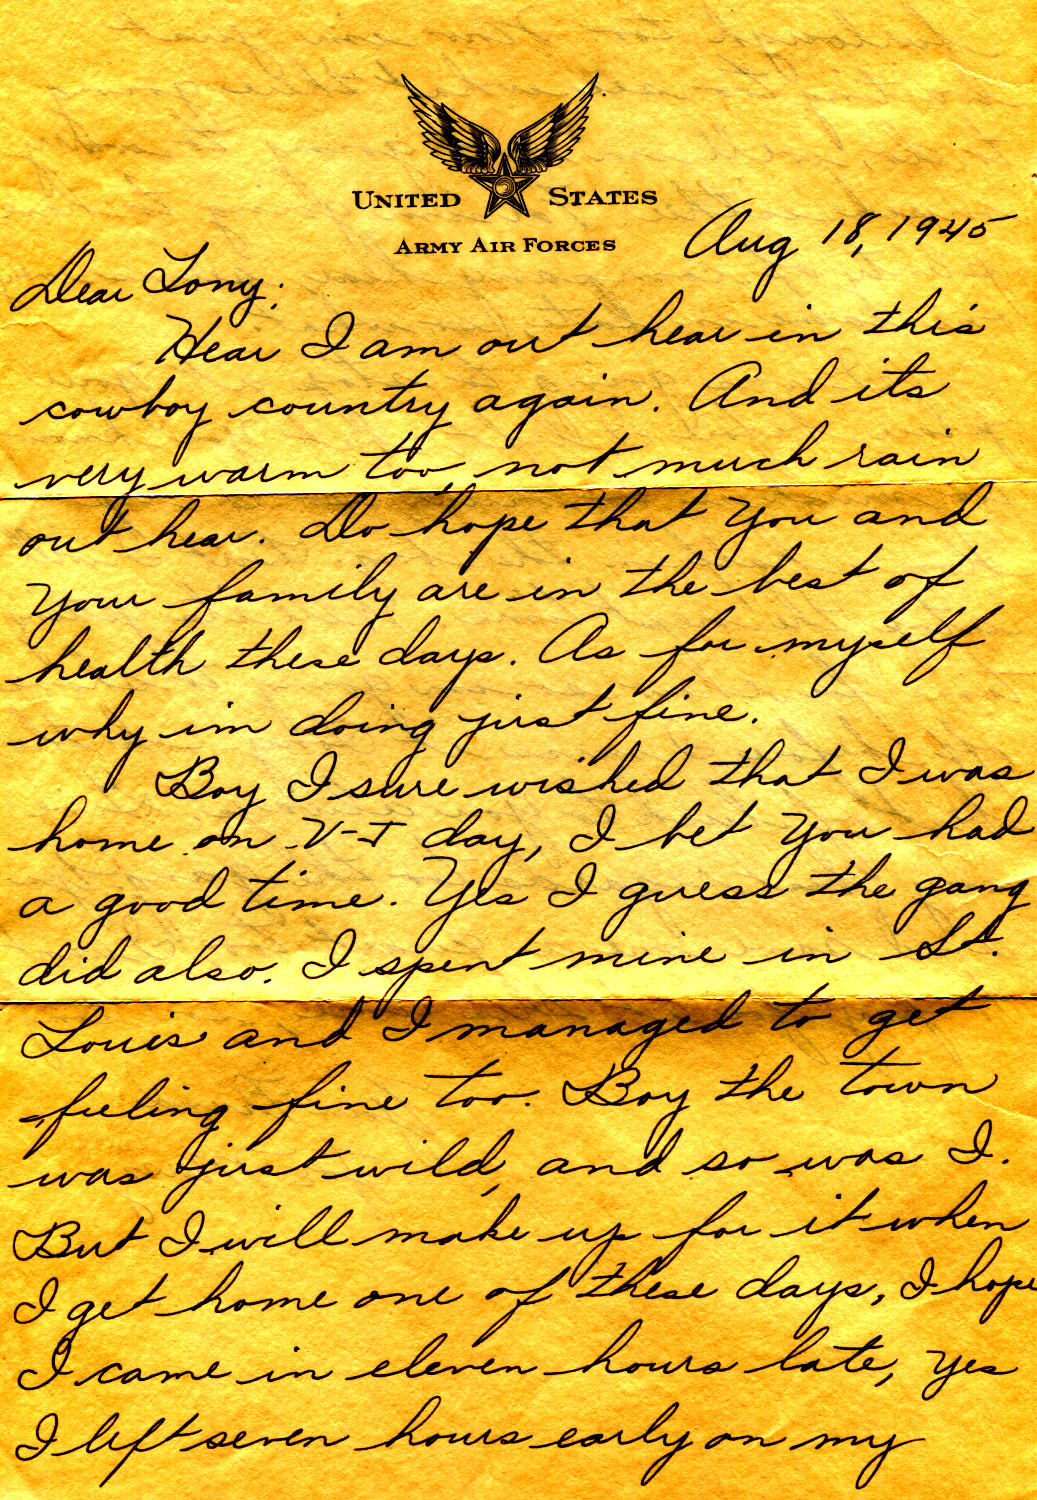 UNITED STATES
ARMY AIR FORCES
Aug 18, 1945
Dear Tony;
Hear I am out hear in this
cowboy country again. And its
very warm too, not much rain
out hear. Do hope that you and
your family are in the best of
health these days. As for myself
why im doing just fine.
Boy I sure wished that I was
home on V-J day, I bet you had
a good time. Yes I guess the gang
did also. I spent mine in St.
Louis and I managed to get
feeling fine too. Boy the town
was just wild, and so was I.
But I will make up for it when
I get home one of these days, I hope
I came in eleven hours late, yes
I left seven hours early on my